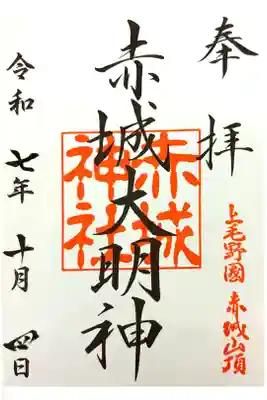 奉拝
上毛野國 赤城山頂
赤城大明神
赤城神社
令和 七年 十月 四日